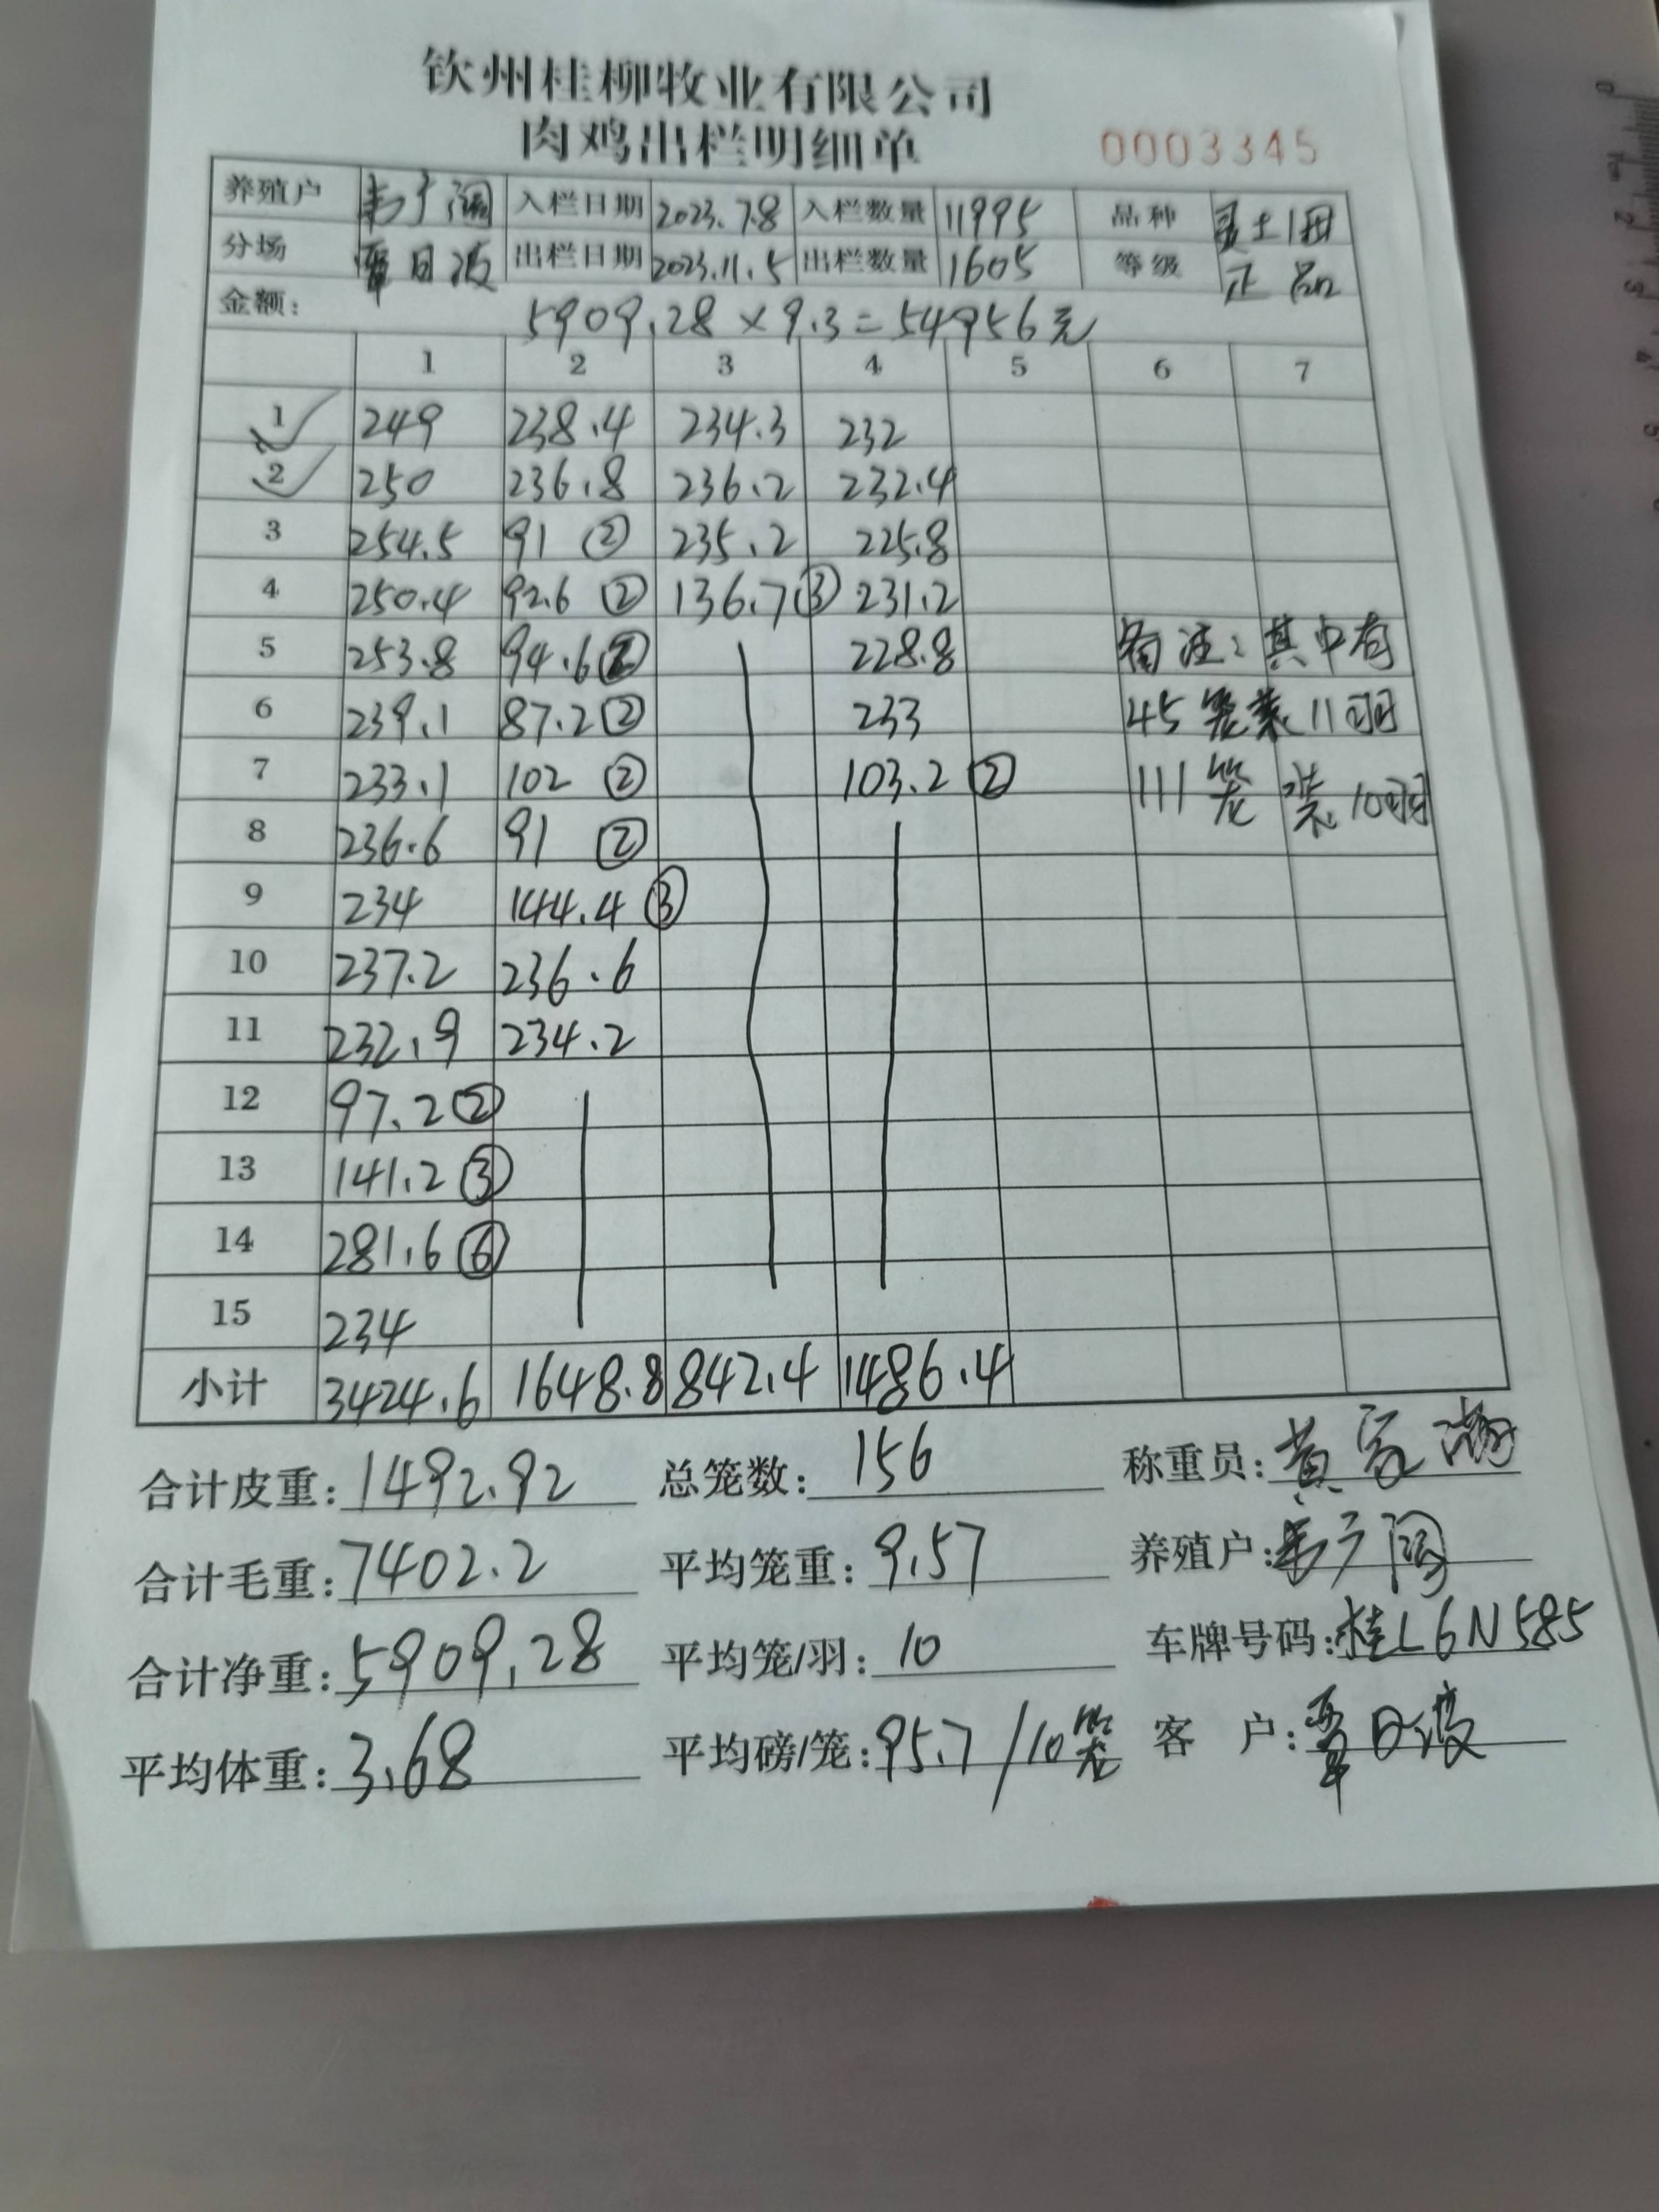 钦州桂柳牧业有限公司
肉鸡出栏明细单 0003345
养殖户 韦广阔 入栏日期 2023.7.8 入栏数量 11995 品种
分场 覃日波 出栏日期 2023.11.5 出栏数量 1605 等级 正品
金额: 5909.28×9.3=54956元
1 2 3 4 5 6 7
1 249 238.4 234.3 232
2 250 236.8 236.2 232.4
3 254.5 91 ② 235.2 225.8
4 250.4 92.6 ② 136.7 ③ 231.2
5 253.8 94.6 ② 228.8 备注:其中有
6 239.1 87.2 ② 233 45笼装11羽
7 233.1 102 ② 103.2 ② 111笼装10羽
8 236.6 91 ②
9 234 144.4 ③
10 237.2 236.6
11 232.9 234.2
12 97.2 ②
13 141.2 ③
14 281.6 ⑥
15 234
小计 3424.6 1648.8 842.4 1486.4
合计皮重:1492.92 总笼数:156 称重员:黄家
合计毛重:7402.2 平均笼重:9.57 养殖户:韦广阔
合计净重:5909.28 平均笼/羽:10 车牌号码:桂L6N585
平均体重:3.68 平均磅/笼:95.7/10笼 客 户:覃日波